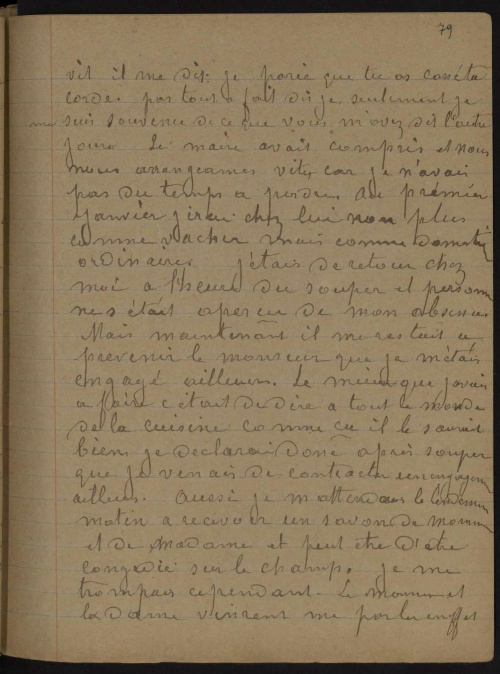 79
vit il me dit: je parie que tu as cassé ta
corde. pas tout a fait dis je, seulement je
me suis souvenu de ce que vous m'avez dit l'autre
jour. Le maire avait compris et nous
nous arrangeames vite, car je n'avais
pas du temps a perdre. Au premier
janvier j'irai chez lui non plus
comme vacher mais comme domestique
ordinaire. j'étais de retour chez
moi a l'heure du souper et personne
ne s'était apercu de mon absence.
Mais maintenant il me restait a
prevenir le monsieur que je m'étais
engagé ailleurs. Le mieux que j'avais
a faire c'était de dire a tout le monde
de la cuisine comme ca il le saurait
bien. je declarai donc après souper
que je venais de contracter un engagement
ailleurs. Aussi je m'attendais le lendemain
matin a recevoir un savon de monsieur
et de Madame et peut etre d'etre
congedié sur le champ. je me
trompais cependant. Le monsieur et
la dame vinrent me parler en effet